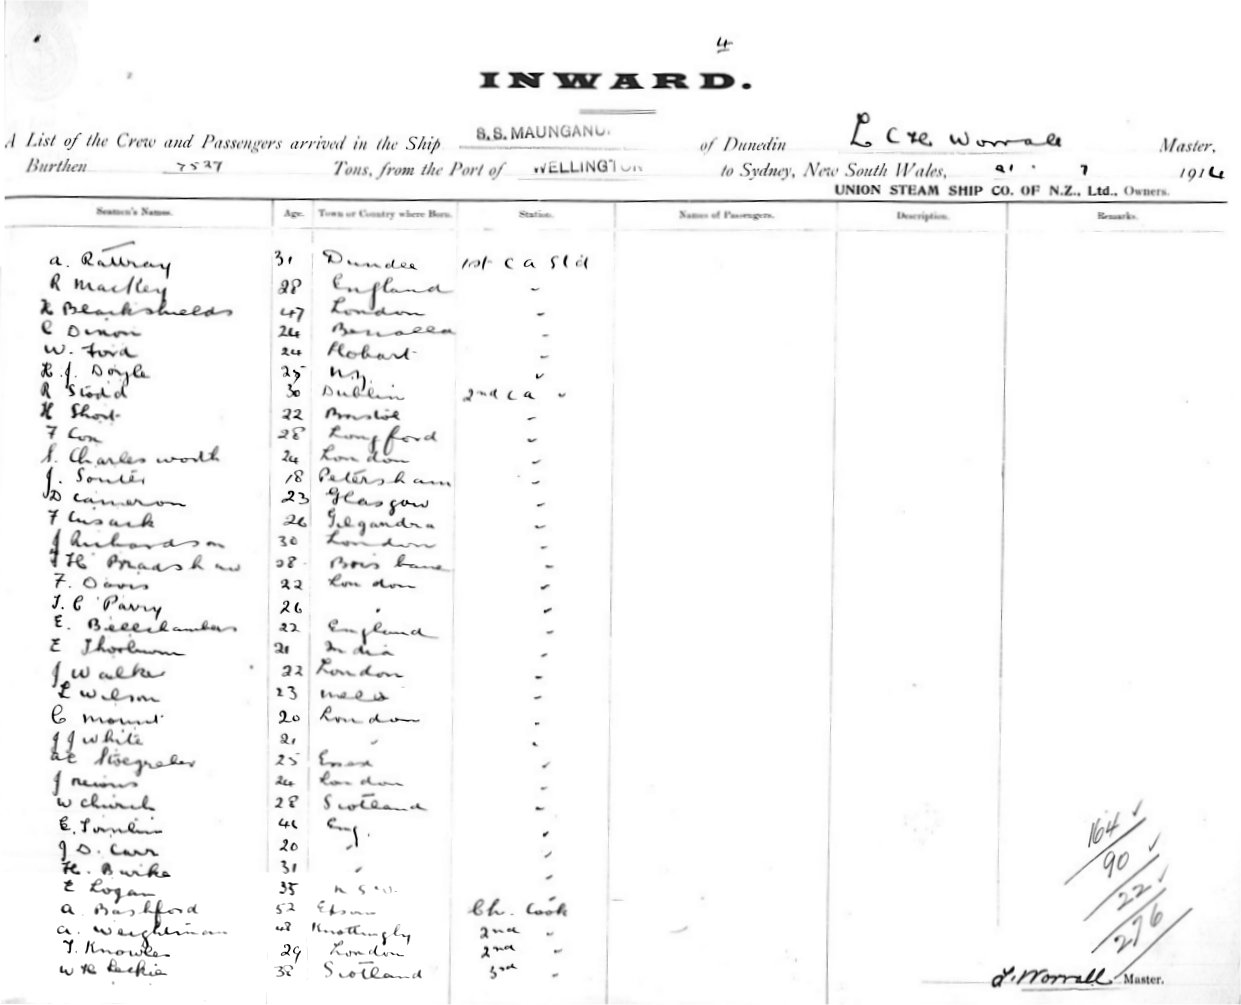 4
INWARD.
A List of the Crew and Passengers arrived in the Ship S.S. MAUNGANUI of Dunedin L C H Worrall Master,
Burthen 7527 Tons, from the Port of WELLINGTON to Sydney, New South Wales, 21 . 7 1914
UNION STEAM SHIP CO. OF N.Z., Ltd., Owners.
Seamen's Names. Age. Town or Country where Born. Station. Names of Passengers. Description. Remarks.
A. Rattray 31 Dundee 1st Ca Std
R Mackey 28 England "
H Blackshields 47 London "
C Dixon 24 Benalla "
W. Ford 24 Hobart "
H. J. Doyle 25 N.Z. "
R Stodd 30 Dublin 2nd Ca "
H Short 22 Bristol "
F Cox 28 Longford "
S. Charlesworth 24 London "
J. Souter 18 Petersham "
D Cameron 23 Glasgow "
F Cusack 26 Gilgandra "
J Richardson 30 London "
F H Bradshaw 28 Brisbane "
F. Davis 22 London "
T. C Parry 26 " "
E. Bellchambers 22 England "
E Thorburn 21 India "
J Walker 22 London "
L Wilson 23 Melb "
C Mount 20 London "
J J White 21 " "
25 Essex "
J 24 London "
W Church 28 Scotland "
E. Tomlin 41 Eng. "
J D. Carr 20 " "
H. Burke 31 " "
E Logan 35 N S W. "
A. Bashford 52 Epsom Ch. Cook
A. Weightman 48 Knottingly 2nd "
T. Knowles 29 London 2nd "
W R Leckie 38 Scotland 3rd "
164 ✓
90 ✓
22 ✓
276
L. Worrall Master.